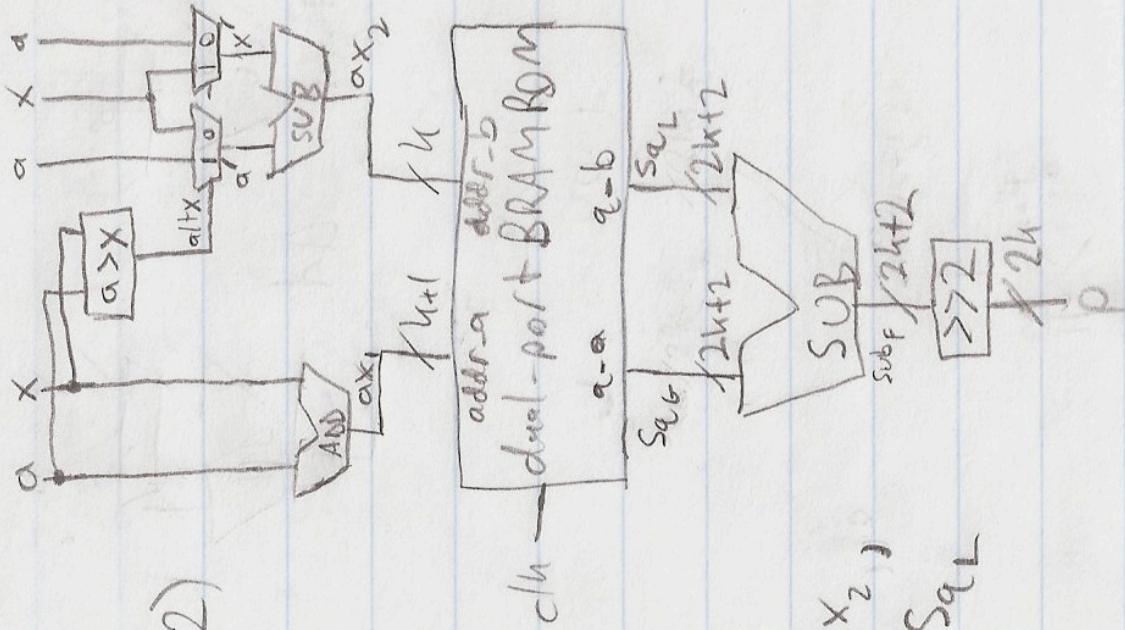 2)
a x a x a
a>x
altx
1 0 1 0
a' x'
ADD SUB
ax1 ax2
k+1 k
addr-a addr-b
clk dual-port BRAM ROM
q-a q-b
SqG SqL
2k+2 2k+2
SUB
subF 2k+2
>>2
2k
p
x2)
SqL